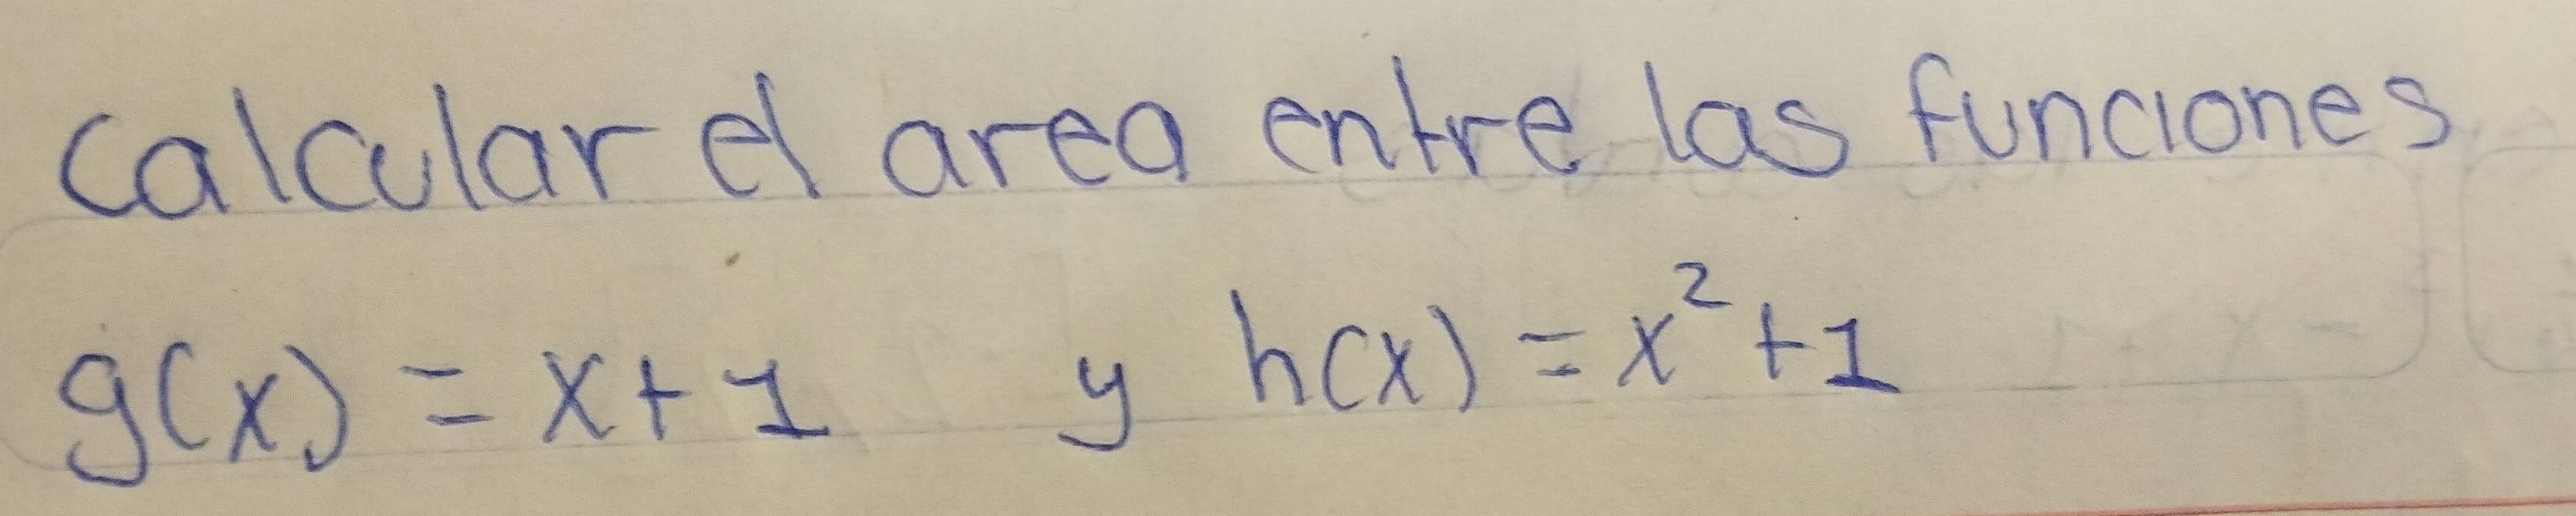 Calcular el area entre las funciones
g(x) = x+1 y h(x) = x²+1